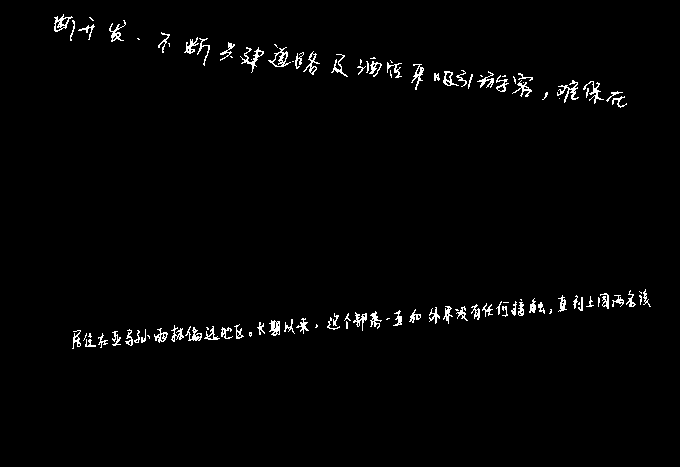 断开发、不断兴建道路及酒店来吸引游客，难保在
居住在亚马孙雨林偏远地区。长期以来，这个部落一直和外界没有任何接触，直到上周两名该